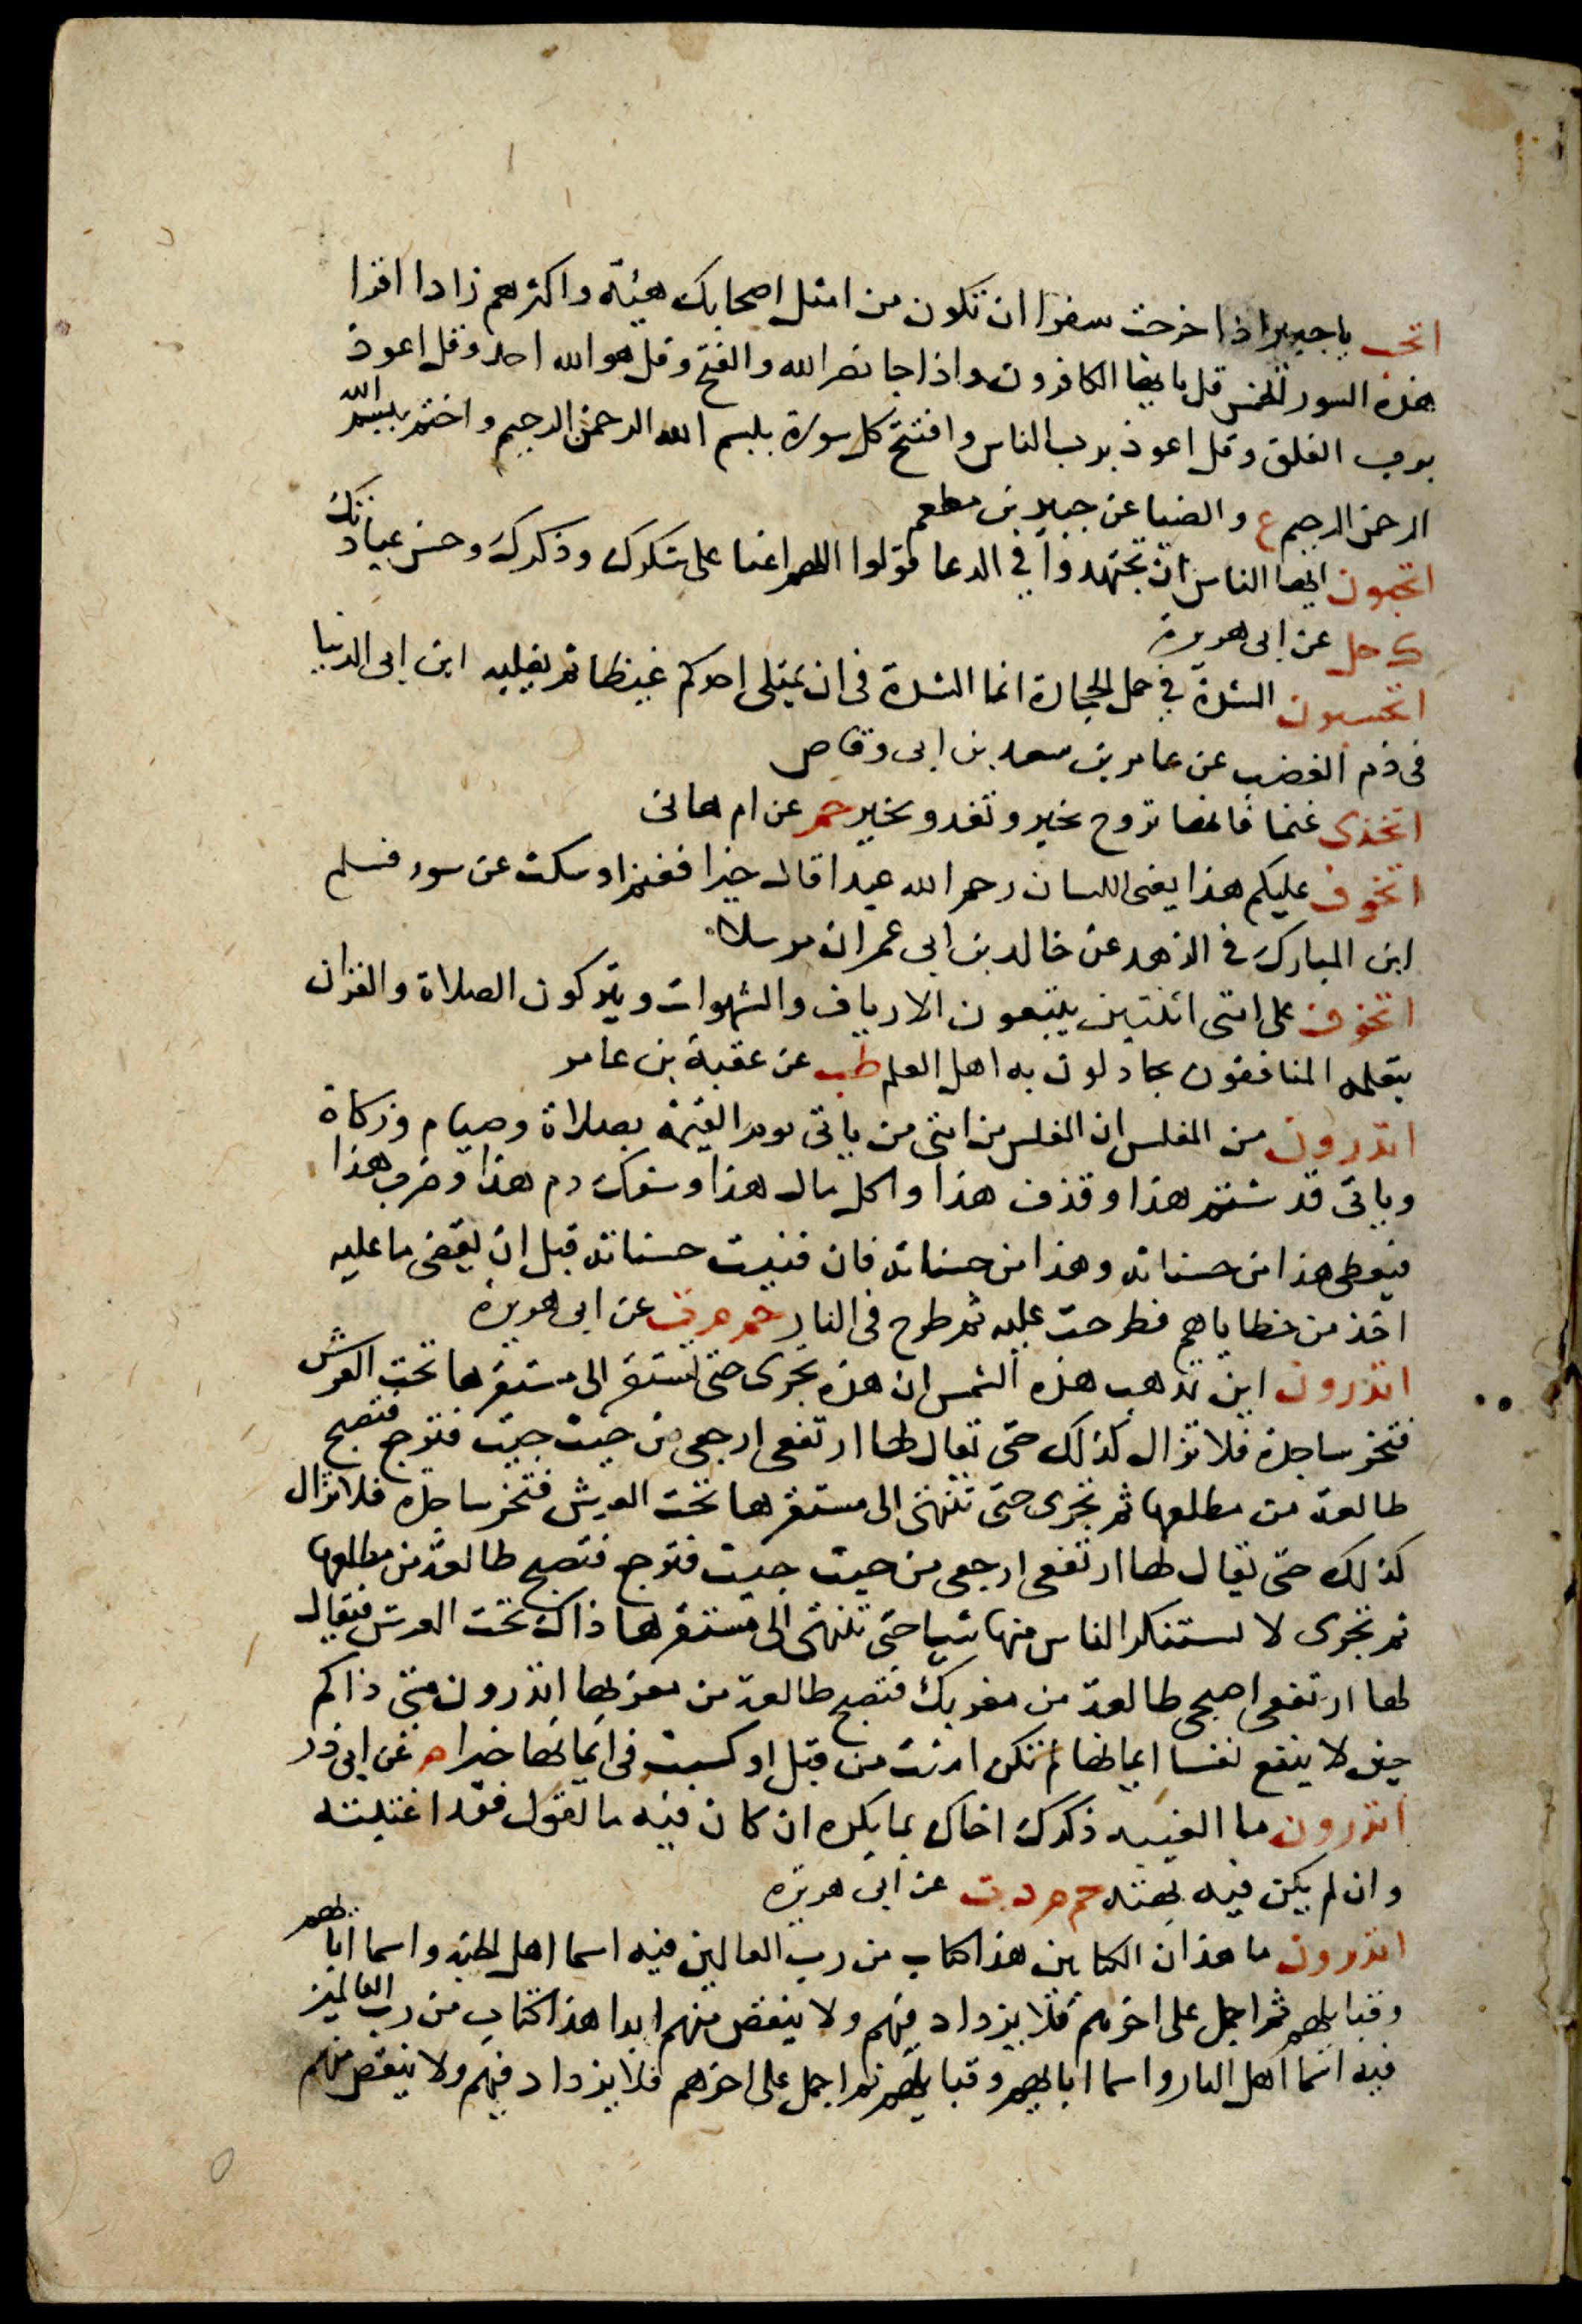 اتحب يا جبير اذا خرجت سفرا ان تكون من امثل اصحابك هيئة واكثرهم زادا اقرا
هذه السور الخمس قل يا ايها الكافرون واذا جا نصر الله والفتح وقل هو الله احد وقل اعوذ
برب الفلق وقل اعوذ برب الناس وافتتح كل سورة ببسم الله الرحمن الرحيم واختم ببسم الله
الرحمن الرحيم ع والضيا عن جبير بن مطعم
اتحبون ايها الناس ان تجتهدوا في الدعا قولوا اللهم اعنا على شكرك وذكرك وحسن عبادتك
ك حل عن ابى هريرة
اتحسبون الشدة في حمل الحجارة انما الشدة فى ان يمتلى احدكم غيظا ثم يغلبه ابن ابى الدنيا
فى ذم الغضب عن عامر بن سعد بن ابى وقاص
اتخذى غنما فانها تروح بخير وتغدو بخير حم عن ام هانى
اتخوف عليكم هذا يعنى اللسان رحم الله عبدا قال خيرا فغنم او سكت عن سوء فسلم
ابن المبارك فى الزهد عن خالد بن ابى عمران مرسلا
اتخوف على امتى اثنتين يتبعون الارياف والشهوات ويتركون الصلاة والقران
يتعلمه المنافقون يجادلون به اهل العلم طب عن عقبة بن عامر
اتدرون من المفلس ان المفلس من امتى من ياتى يوم القيمة بصلاة وصيام وزكاة
وياتى قد شتم هذا وقذف هذا واكل مال هذا وسفك دم هذا وضرب هذا
فيعطى هذا من حسناته وهذا من حسناته فان فنيت حسناته قبل ان يقضى ما عليه
اخذ من خطاياهم فطرحت عليه ثم طرح فى النار حم م ت عن ابى هريرة
اتدرون اين تذهب هذه الشمس ان هذه تجرى حتى تستقر الى مستقرها تحت العرش
فتخر ساجدة فلا تزال كذلك حتى يقال لها ارتفعى ارجعى من حيث جيت فترجع فتصبح
طالعة من مطلعها ثم تجرى حتى تنتهى الى مستقرها تحت العرش فتخر ساجدة فلا تزال
كذلك حتى يقال لها ارتفعى ارجعى من حيث جيت فترجع فتصبح طالعة من مطلعها
ثم تجرى لا يستنكر الناس منها شيا حتى تنتهى الى مستقرها ذاك تحت العرش فيقال
لها ارتفعى اصبحى طالعة من مغربك فتصبح طالعة من مغربها اتدرون متى ذاكم
حين لا ينفع نفسا ايمانها لم تكن امنت من قبل او كسبت فى ايمانها خيرا م عن ابى ذر
اتدرون ما الغيبه ذكرك اخاك بما يكره ان كان فيه ما تقول فقد اغتبته
وان لم يكن فيه بهته حم م د ت عن ابى هريره
اتدرون ما هذان الكتابين هذا كتاب من رب العالمين فيه اسما اهل الجنة واسما ابايهم
وقبايلهم ثم اجمل على اخرهم فلا يزداد فيهم ولا ينقص منهم ابدا هذا كتاب من رب العالمين
فيه اسما اهل النار واسما ابايهم وقبايلهم ثم اجمل على اخرهم فلا يزداد فيهم ولا ينقص منهم